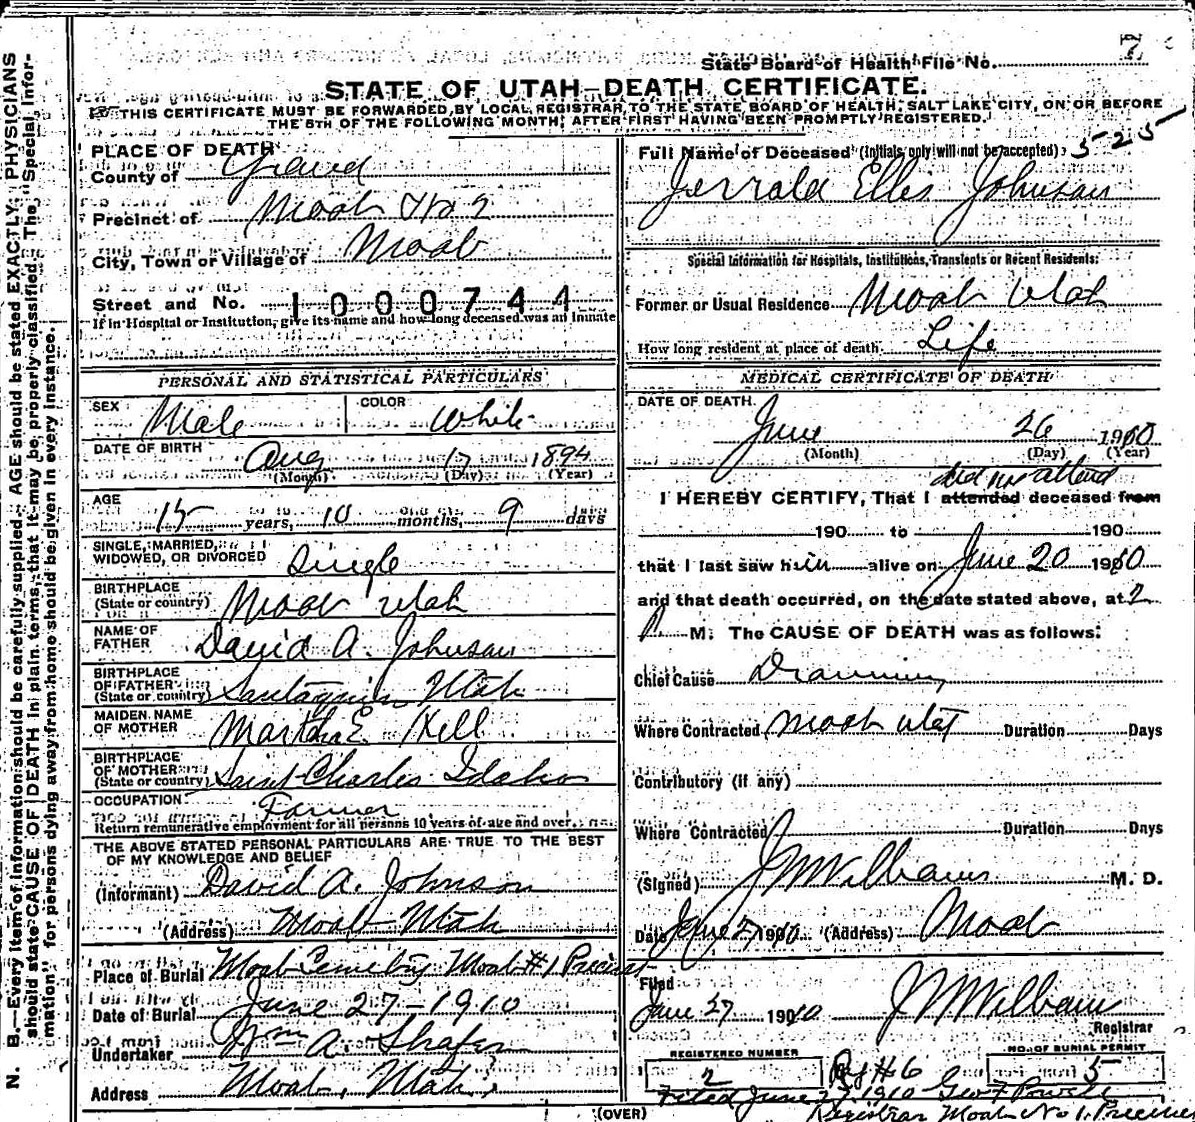 State Board of Health File No.
STATE OF UTAH—DEATH CERTIFICATE.
THIS CERTIFICATE MUST BE FORWARDED BY LOCAL REGISTRAR TO THE STATE BOARD OF HEALTH, SALT LAKE CITY, ON OR BEFORE
THE 5TH OF THE FOLLOWING MONTH, AFTER FIRST HAVING BEEN PROMPTLY REGISTERED.
N. B.—Every item of information should be carefully supplied. AGE should be stated EXACTLY. PHYSICIANS
should state CAUSE OF DEATH in plain terms, that it may be properly classified. The "Special Infor-
mation" for persons dying away from home should be given in every instance.
PLACE OF DEATH
County of Grand
Precinct of Moab No 2
City, Town or Village of Moab
Street and No. 1000744
If in Hospital or Institution, give its name and how long deceased was an Inmate
PERSONAL AND STATISTICAL PARTICULARS
SEX Male COLOR White
DATE OF BIRTH Aug 17 1894
(Month) (Day) (Year)
AGE
15 years, 10 months, 9 days
SINGLE, MARRIED,
WIDOWED, OR DIVORCED Single
BIRTHPLACE
(State or country) Moab Utah
NAME OF
FATHER David A. Johnson
BIRTHPLACE
OF FATHER
(State or country) Santaquin Utah
MAIDEN NAME
OF MOTHER Martha E. Kell
BIRTHPLACE
OF MOTHER
(State or country) Saint Charles Idaho
OCCUPATION Farmer
Return remunerative employment for all persons 10 years of age and over.
THE ABOVE STATED PERSONAL PARTICULARS ARE TRUE TO THE BEST
OF MY KNOWLEDGE AND BELIEF
(Informant) David A. Johnson
(Address) Moab Utah
Place of Burial Moab Cemetery Moab #1 Precinct
Date of Burial June 27-1910
Undertaker Wm A. Shafer
Address Moab, Utah
Full Name of Deceased (initials only will not be accepted) 525
Jerrald Ellis Johnson
Special Information for Hospitals, Institutions, Transients or Recent Residents:
Former or Usual Residence Moab Utah
How long resident at place of death Life
MEDICAL CERTIFICATE OF DEATH
DATE OF DEATH.
June 26 1910
(Month) (Day) (Year)
did not attend
I HEREBY CERTIFY, That I attended deceased from
190 to 190
that I last saw him alive on June 20 1910
and that death occurred, on the date stated above, at 2
P. M. The CAUSE OF DEATH was as follows:
Chief Cause Drowning
Where Contracted Moab Utah Duration Days
Contributory (if any)
Where Contracted Duration Days
(Signed) J W Williams M. D.
Date June 27 1910 (Address) Moab
Filed
June 27 1910 J W Williams
Registrar
REGISTERED NUMBER NO. OF BURIAL PERMIT
2 Reg #6 5
Filed June 27 1910 Geo F Powell
(OVER) Registrar Moab No 1. Precinct